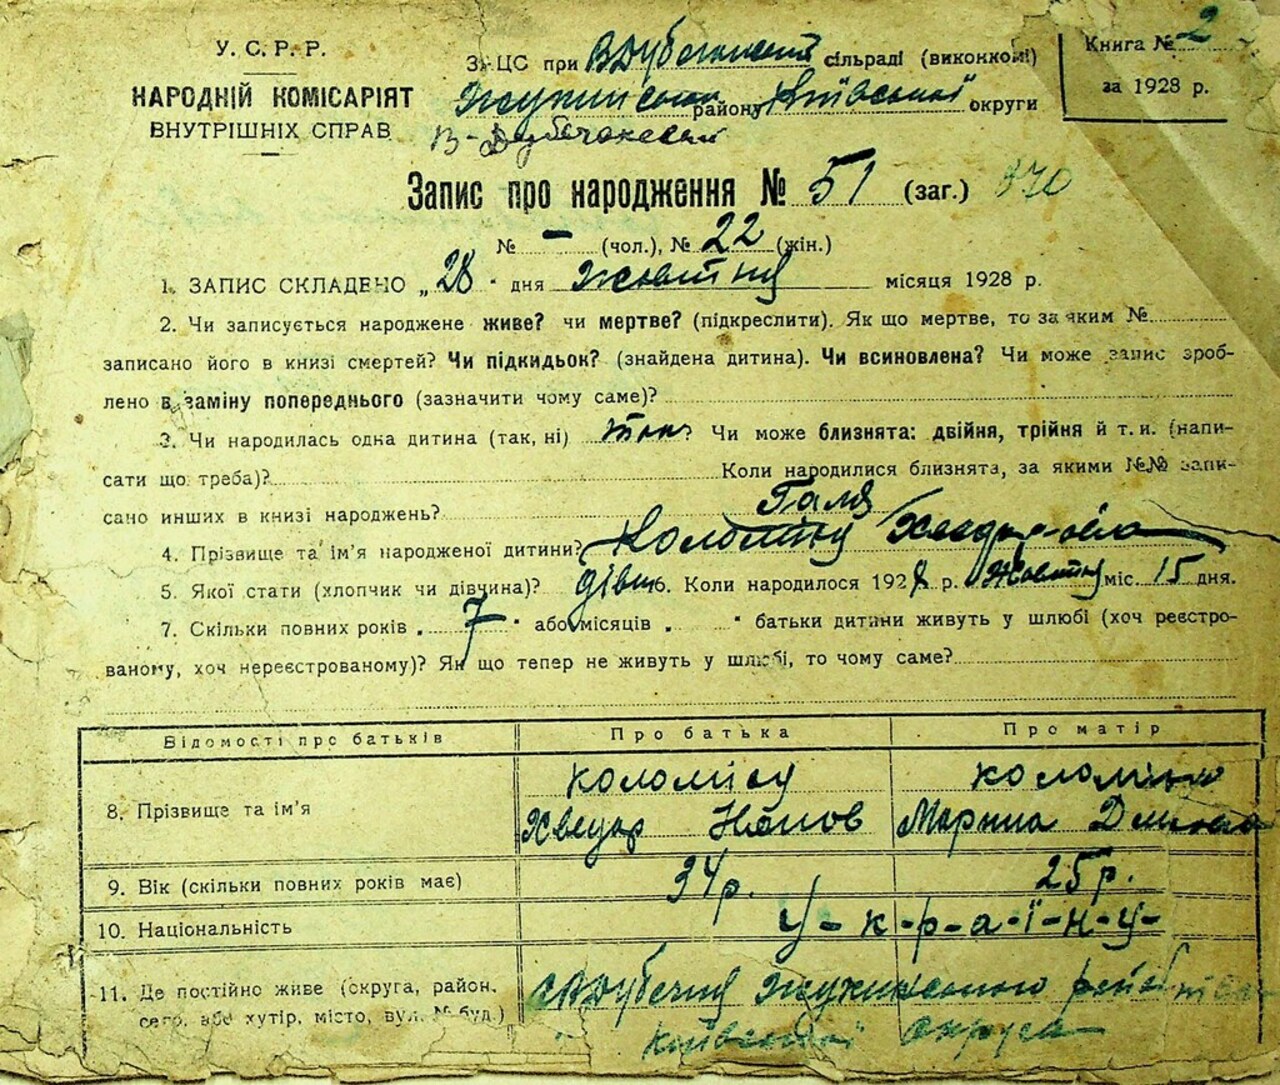 У. С. Р. Р.
НАРОДНІЙ КОМІСАРІЯТ
ВНУТРІШНІХ СПРАВ
ЗАЦС при В Дубечанській сільраді (виконкомі)
району Київської округи
Книга № 2
за 1928 р.
Запис про народження № 51 (заг.) 370
№ – (чол.), № 22 (жін.)
1. ЗАПИС СКЛАДЕНО „28" дня жовтня місяця 1928 р.
2. Чи записується народжене живе? чи мертве? (підкреслити). Як що мертве, то за яким №
записано його в книзі смертей? Чи підкидьок? (знайдена дитина). Чи всиновлена? Чи може запис зроб-
лено в заміну попереднього (зазначити чому саме)?
3. Чи народилась одна дитина (так, ні) так? Чи може близнята: двійня, трійня й т. и. (напи-
сати що треба)? Коли народилися близнята, за якими №№ запи-
сано инших в книзі народжень?
Галя
4. Прізвище та ім'я народженої дитини?
5. Якої стати (хлопчик чи дівчина)? дівч 6. Коли народилося 1928 р. Жовтня міс. 15 дня.
7. Скільки повних років „ 7 " або місяців „ " батьки дитини живуть у шлюбі (хоч реєстро-
ваному, хоч нереєстрованому)? Як що тепер не живуть у шлюбі, то чому саме?
Відомості про батьків Про батька Про матір
8. Прізвище та ім'я
Хведир Марина
9. Вік (скільки повних років має) 34р. 25р.
10. Національність У-к-р-а-ї-н-у-
11. Де постійно живе (округа, район,
село, або хутір, місто, вул. № буд.)
Київської округа